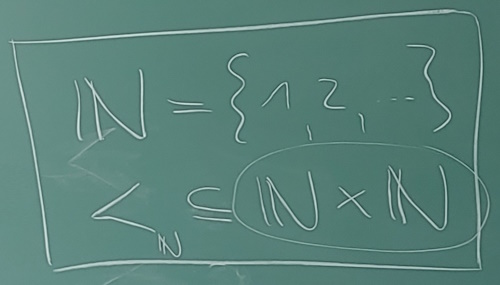 ℕ = {1, 2, ...}
<_ℕ ⊆ ℕ × ℕ